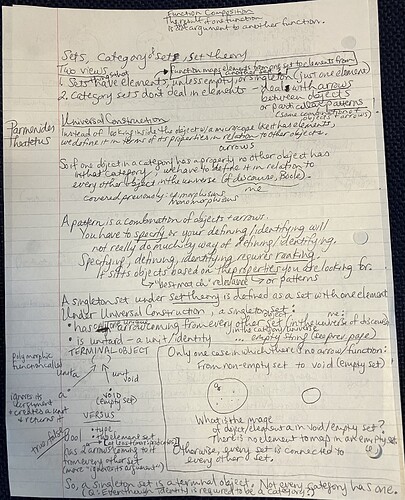 Function Composition
The result of one function
is an argument to another function.
Sets, Category of sets, set theory
Two views
Function maps elements from one set to elements from
another set
1. Sets have elements, unless empty or singleton (just one element)
2. Category sets don't deal in elements - deals with arrows
between objects
or particular patterns
(some combinations of
objects & arrows)
Parmenides
Theatetus
Universal Construction
Instead of looking inside the object w/a microscope (set has elements)
we define it in terms of its properties in relation to other objects.
arrows
So if one object in a category has a property no other object has
in that category, we have to define it in relation to
every other object in the universe (of discourse, Boole).
me
covered previously: epimorphisms,
monomorphisms
A pattern is a combination of objects + arrows.
You have to specify or your defining/identifying will
not really do much by way of defining/identifying.
Specifying, defining, identifying requires ranking.
It sifts objects based on the properties you are looking for.
"best match" relevance or patterns
A singleton set under set theory is defined as a set with one element
Under Universal Construction, a singleton set:
object, me:
• has an arrow coming from every other set (in the universe of discourse)
in the category/universe
• is unitard - a unit/identity ... empty string (see prev page)
TERMINAL OBJECT
polymorphic
function called
unit a
unit
void
ignores its
argument
+ creates a unit
+ returns it
a
VOID
(empty set)
VERSUS
true/false
bool
• type
• two element set
(at least from set theory/basis)
has 2 arrows coming to it
from every other set
(more if it ignores arguments)
Only one case in which there is no arrow/function:
From non-empty set to void (empty set)
What is the image
of object/elements a in void/empty set?
There is no element to map in an empty set
Otherwise, every set is connected to
every other set.
So, a singleton set is a terminal object. Not every category has one.
(Q: Even though identity is required to be a category?)